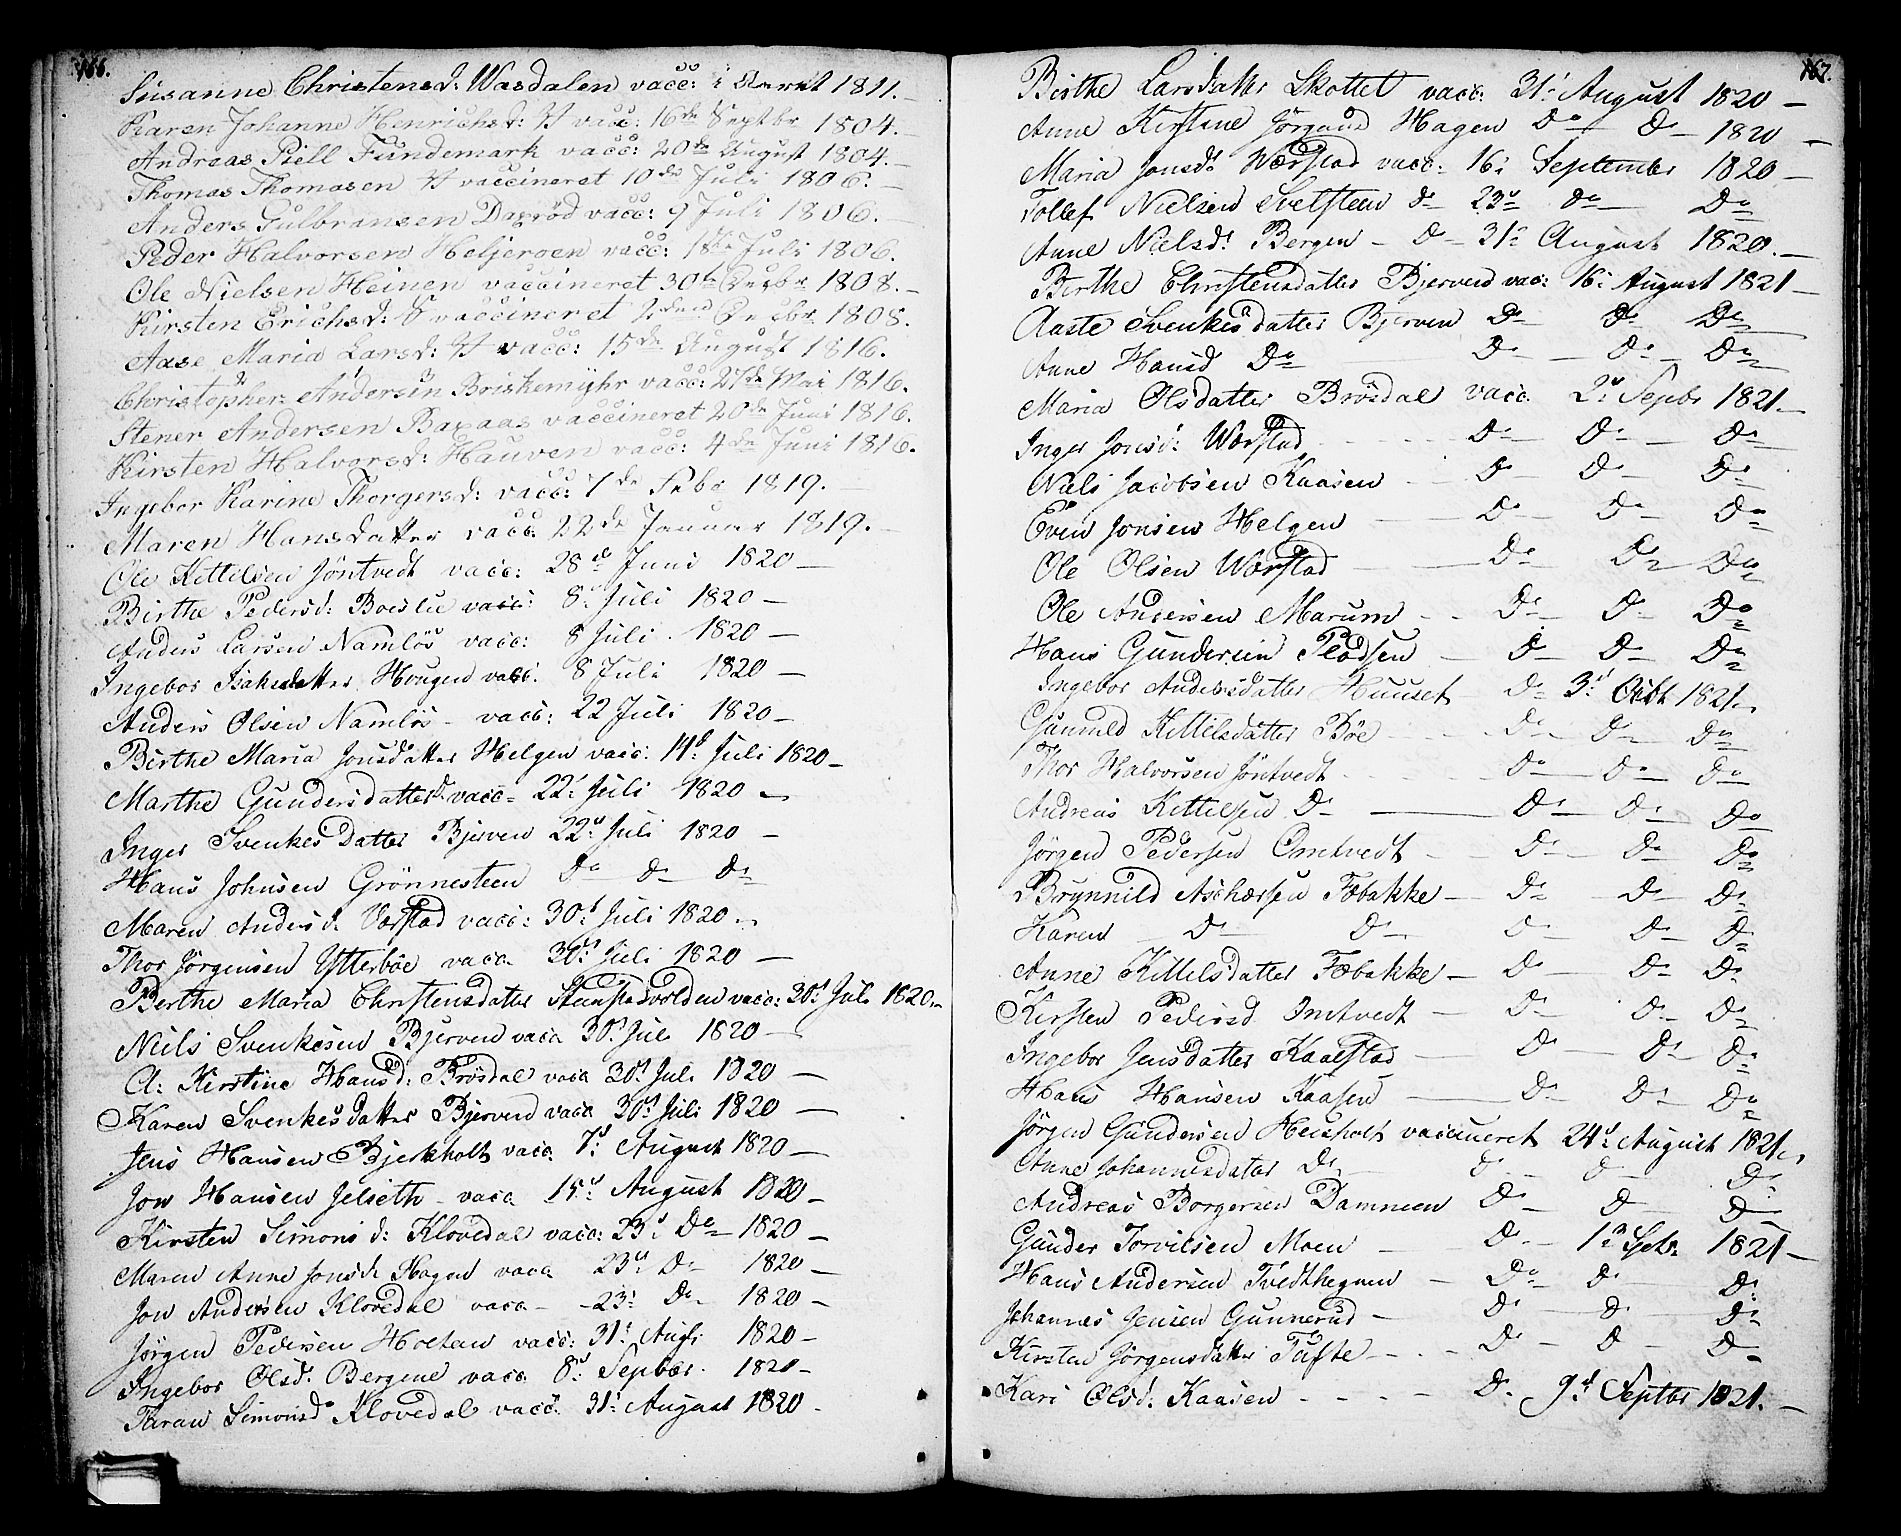 166.
Susanne Christensd: Wasdalen vacc: 1811.
Karen Johanne Henrichsd: vacc: 16de Septbr 1804.
Andreas Piell Fundemark vacc: 20de August 1804.
Thomas Thomasen vaccineret 10de Juli 1806.
Anders Gulbransen Daxröd vacc: 9 Juli 1806.
Peder Halvorsen Heljeroen vacc: 18de Juli 1806.
Ole Nielsen Heinen vaccineret 30te 1808.
Kirsten Erichsd: vaccineret 1808.
Aase Maria Larsd: vacc: 15de August 1816.
Christopher Andersen Briskemyhr vacc: 27de Mai 1816.
Stener Andersen Baxaas vaccineret 20de Juni 1816.
Kirsten Halvorsd: Hauven vacc: 4de Juni 1816.
Ingebor Karine Thorgersd: vacc: 7de Febr 1819.
Maren Hansdatter vacc. 22de Januar 1819.
Ole Kittilsen Jöntvedt vacc: 28d Juni 1820
Birthe Pedersd: Boeslie vacc: 8d Juli 1820
Anders Larsen Namlös vacc: 8 Juli 1820
Ingebor Isaksdatter Hougen vacc. 8 Juli 1820
Anders Olsen Namlös vacc: 22 Juli 1820
Birthe Maria Jonsdatter Helgen vacc: 14d Juli 1820
Marthe Gundersdatter vacc 22d Juli 1820
Inger Svenkesdatter Bjerven 22d Juli 1820
Hans Johnsen Grönnesteen Do Do Do
Maren Andersd. Værstad vacc: 30d Juli 1820
Thor Jörgensen Ytterböe vacc 30d Juli 1820
Berthe Maria Christensdatter vacc: 30d Juli 1820
Niels Svenkesen Bjerven vacc 30d Juli 1820
A: Kirstine Hansd: Brösdal vacc 30d Juli 1820
Karen Svenkesdatter Bjerven vacc 30d Juli 1820
Jens Hansen Bjerkholt vacc 7d August 1820
Jon Hansen Jelseth vacc 15d August 1820
Kirsten Simonsd: Klovedal vacc: 23d Do 1820
Maren Anne Jonsd: Hagen vacc 23d Do 1820
Jon Andersen Klovedal vacc 23d Do 1820
Jörgen Pedersen Hoetan vacc: 31d Augs 1820
Ingebor Olsd: Bergene vacc 8d Sepber 1820
Taran Simonsd Klovedal vacc. 31d August 1820
167.
Birthe Larsdatter Skottet vacc. 31d August 1820
Anne Kirstine Jörgensd Hagen Do Do 1820
Maria Jonsd: Wærstad vacc. 16d September 1820
Tollef Nielsen Svelsteen Do 23d Do Do
Anne Nielsd: Bergen Do 31d August 1820.
Birthe Christensdatter Bjerven vac: 16d August 1821
Aaste Svenkesdatter Bjerven Do Do Do
Anne Hansd Do Do Do Do
Maria Olsdatter Brösdal vacc 2d Sepbr 1821.
Inger Jonsd: Wærstad Do Do Do
Niels Jacobsen Kaasen Do Do Do
Even Jonsen Helgen Do Do Do
Ole Olsen Wærstad Do Do Do
Ole Andersen Marum Do Do Do
Hans Gundersen Pladsen Do Do Do
Ingebor Andersdatter Huuset Do 3d Octbr 1821.
Gunnild Kittilsdatter Böe Do Do Do
Thor Halvorsen Jöntvedt Do Do Do
Andreas Kittelsen Do Do Do Do
Jörgen Pedersen Omtvedt Do Do Do
Brynnild Aschersen Fæbakke Do Do Do
Karen Do Do Do Do Do
Anne Kittelsdatter Fæbakke Do Do Do
Kirsten Pedersd Omtvedt Do Do Do
Ingebor Jensdatter Kaalstad Do Do Do
Hans Hansen Kaasen Do Do Do
Jörgen Gundersen Heisholt vaccineret 24d August 1821.
Anne Johannesdater Do Do Do Do
Andreas Borgersen Damneen Do Do Do
Gunder Torvilsen Moen Do 1d Septr 1821
Hans Andersen Tvedthegnen Do Do Do
Johannes Jensen Gunnerud Do Do Do
Kirsten Jörgensdatter Tufte Do Do Do
Kari Olsd. Kaasen Do 9d Septbr 1821.